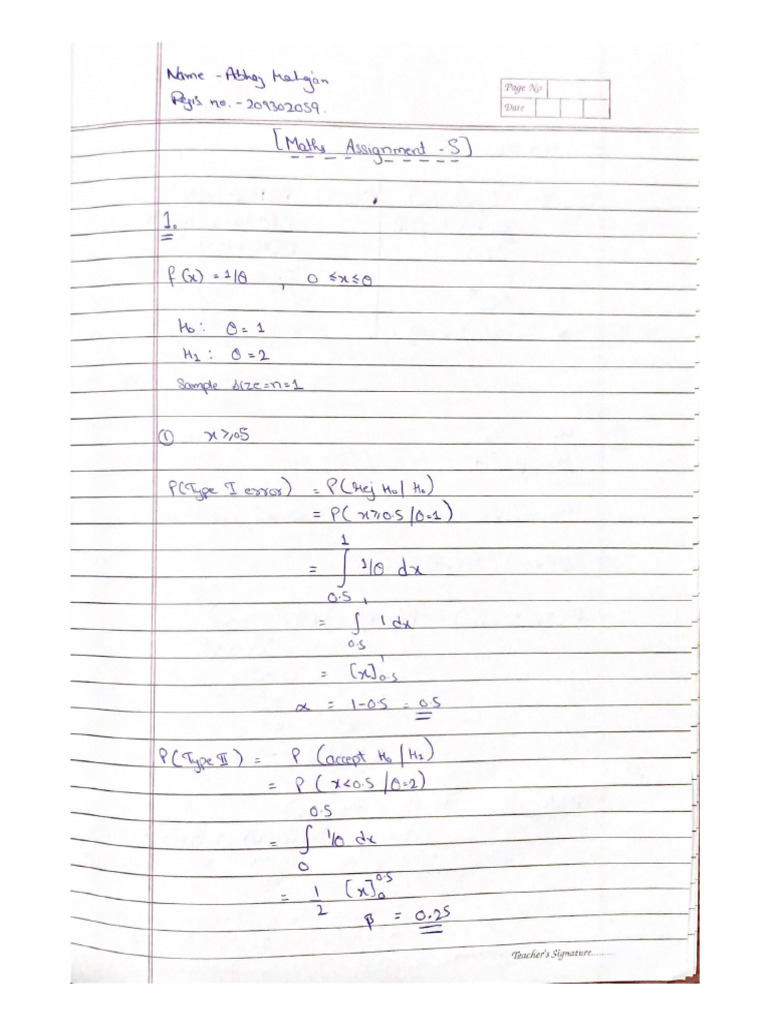 Name - Abhay Mahajan
Page No
Regis no. - 209302059.
Date
[Maths Assignment - 5]
1.
f(x) = 1/θ , 0 ≤ x ≤ θ
H₀ : θ = 1
H₁ : θ = 2
Sample size = n = 1
① x ≥ 05
P(Type I error) = P(Rej H₀ / H₀)
= P( x ≥ 0.5 / θ=1)
1
= ∫ 1/θ dx
0.5 1
= ∫ 1 dx
0.5
= [x]¹₀.₅
α = 1 - 0.5 = 0.5
P(Type II) = P (accept H₀ / H₁)
= P ( x < 0.5 / θ=2)
0.5
= ∫ 1/θ dx
0
= 1/2 [x]₀^0.5
β = 0.25
Teacher's Signature.........